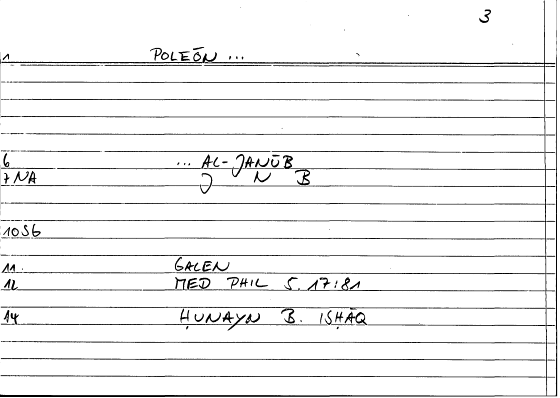 3
1 POLEŌN ...
6 ... AL-JANŪB
7 NA J N B
10 SG
11 GALEN
12 MED PHIL S. 17:81
14 ḤUNAYN B. ISḤĀQ